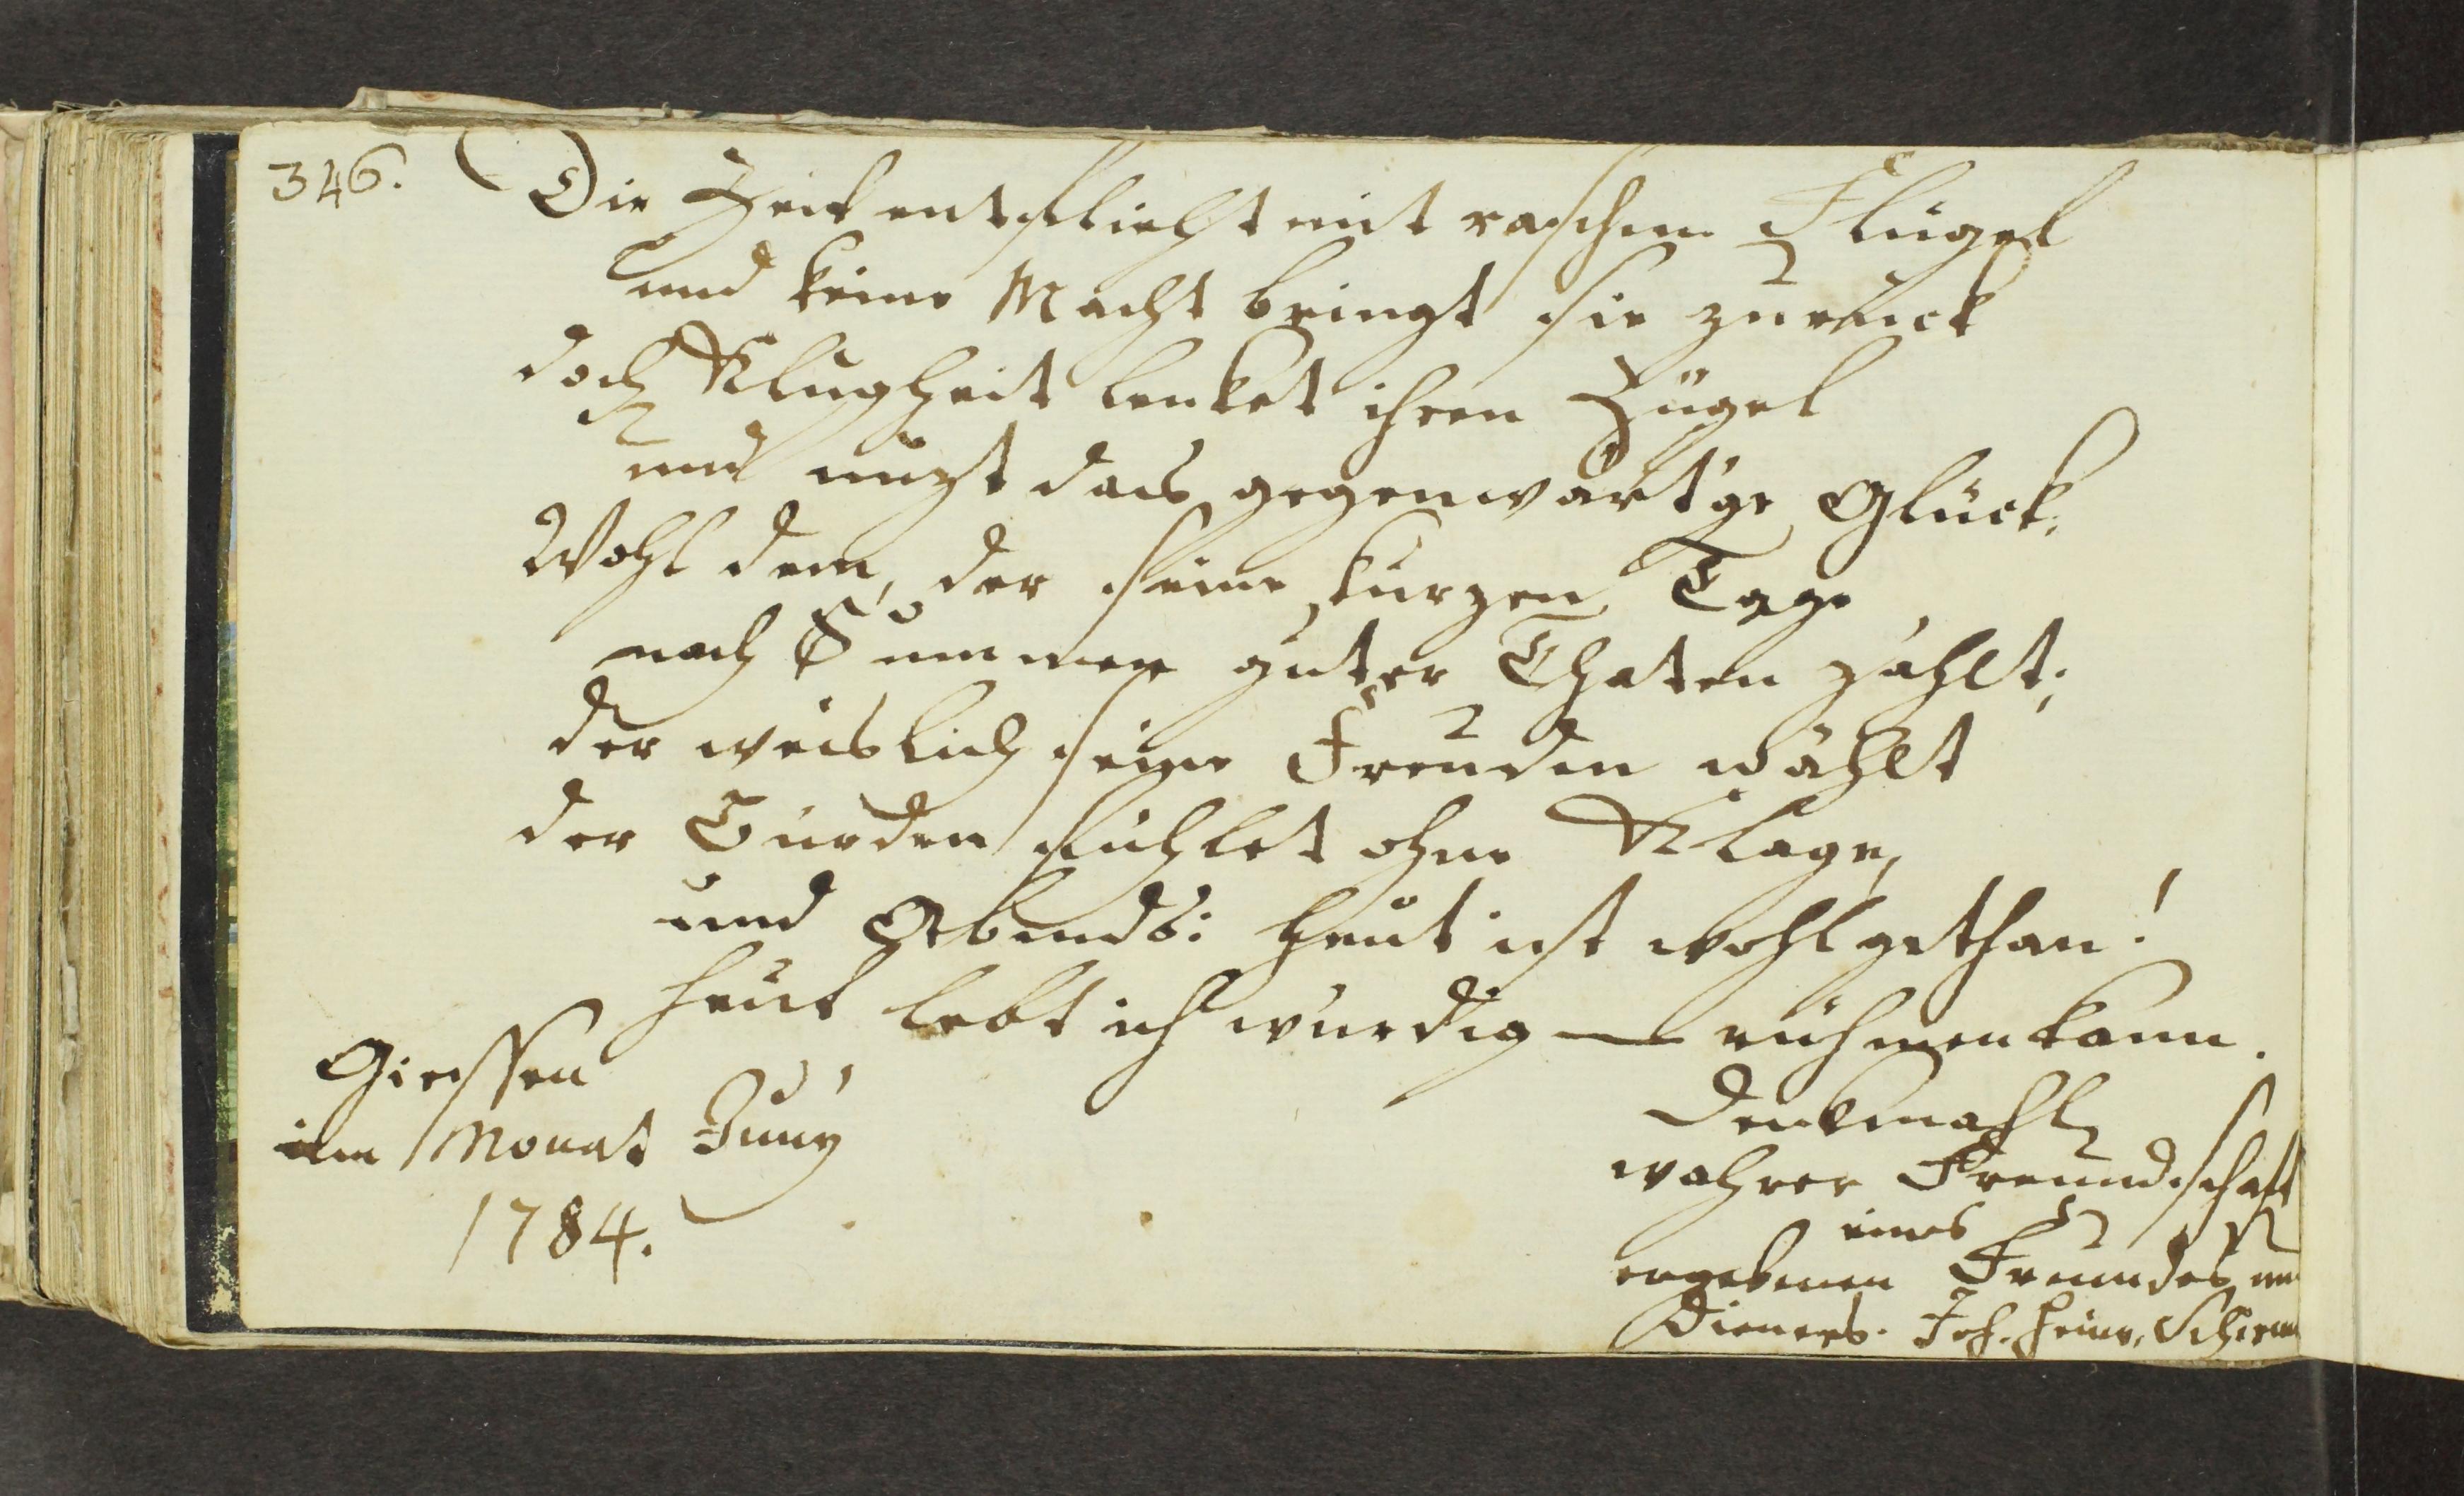 346.
Die Zeit entflieht mit raschem Flügel
und keine Macht bringt sie zurück
doch Klugheit lenket ihren Zügel
und nuzt das gegenwärt'ge Glück.
Wohl dem, der seine kurzen Tage
nach Summen guter Thaten zählt;
der weislich seine Freuden wählt
der Bürden fühlet ohne Klage,
und Abends: heut ist wohl gethan!
heut lebt ich würdig — rühmen kann.
Giessen
im Monat Juny
1784.
Denkmahl
wahrer Freundschaft
eines
ergebenen Freundes un
Dieners. Joh. Heinr.